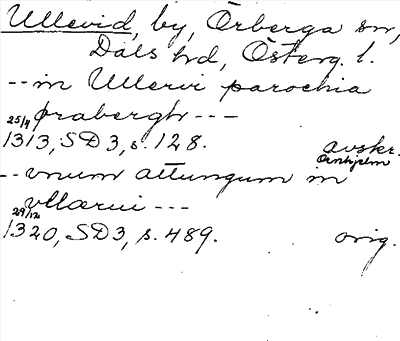 Ullevid, by, Örberga sn,
Dals hd, Österg. l.
-- in Ullervi parochia
ørabergh ---
25/4
1313, SD 3, s. 128. avskr.
Örnhjelm
-- vnum attungum in
vllærui ---
29/12
1320, SD 3, s. 489. orig.